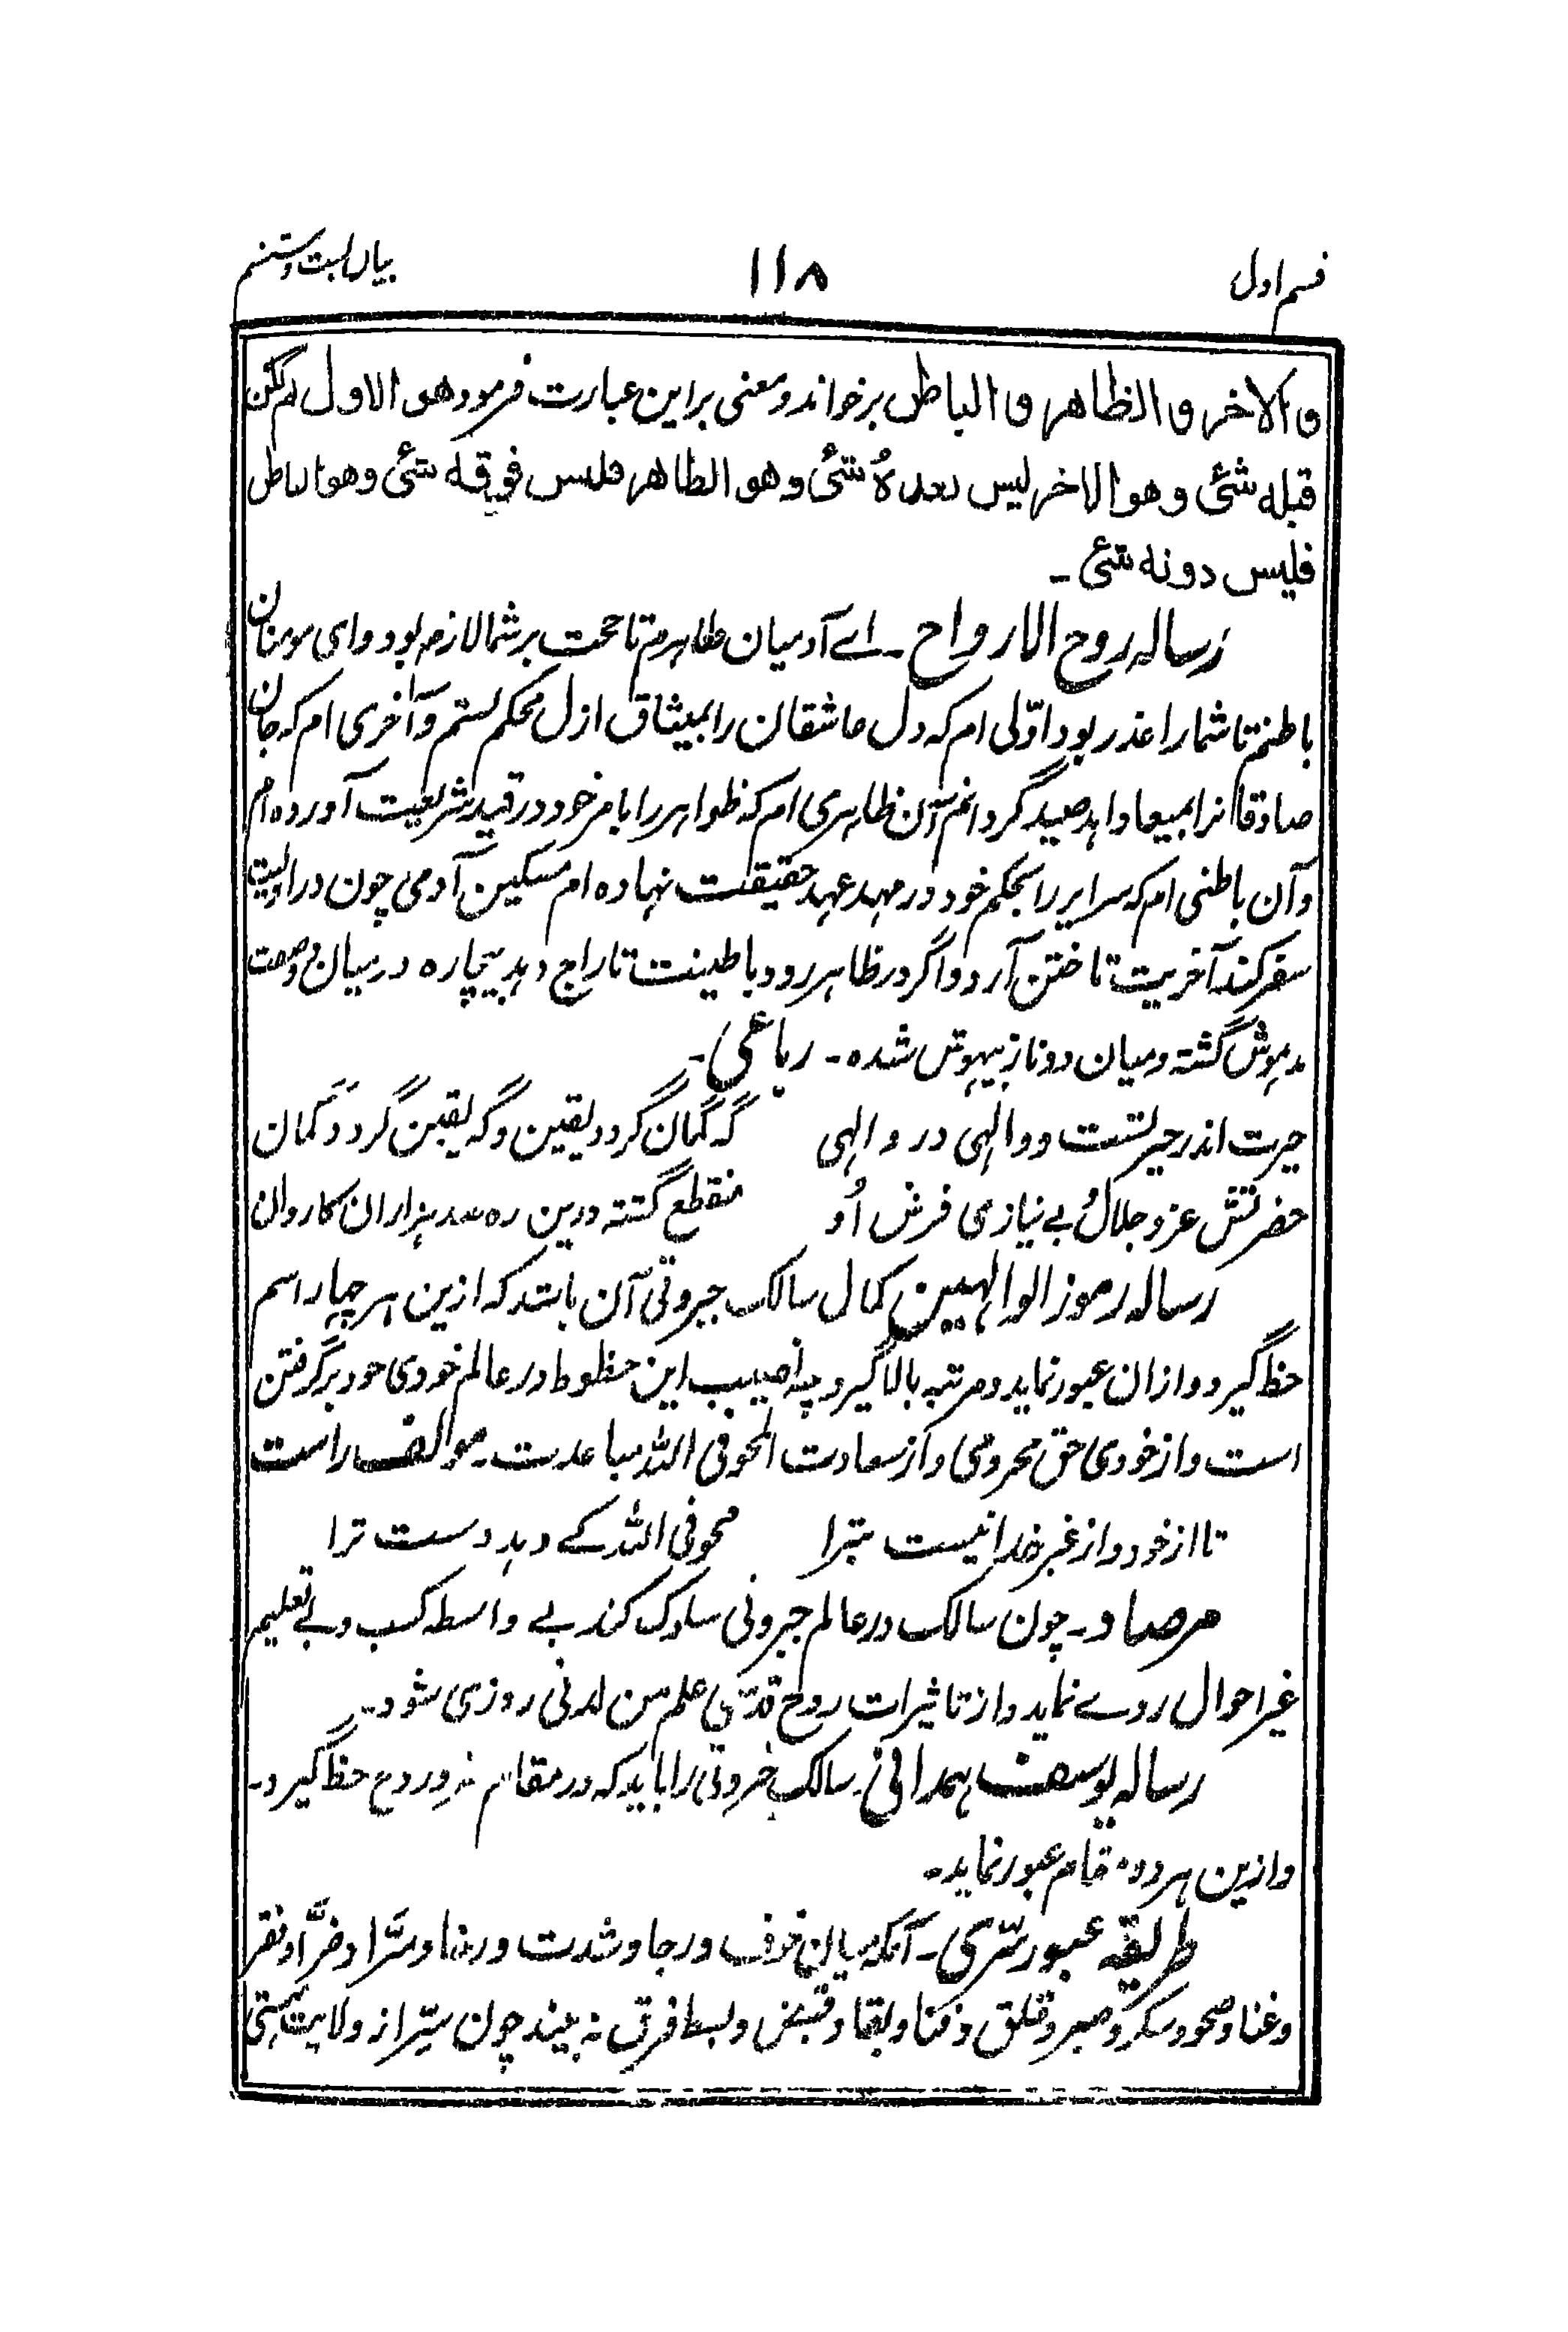 قسم اول
۱۱۸
بیان بست و ششم
و الاخر و الظاهر و الباطن برخواند و معنی براین عبارت فرمود هو الاول لم یکن
قبله شئ و هو الاخر لیس بعدهُ شئ و هو الظاهر فلیس فوقه شئ و هو الباطن
فلیس دونه شئ ۔
رساله روح الارواح ۔ اے آدمیان ظاهرم تا حجت بر شما لازم بود و ای مومنان
باطنم تا شما را عذر بود اوّلی ام که دل عاشقان را بمیثاق ازل محکم بستم و آخری ام که جان
صادقانرا بمیعاد ابد صید گردانم آن ظاهری ام که ظواهر را بامر خود در قید شریعت آورده ام
و آن باطنی ام که سرایر را بحکم خود در مهد عهد حقیقت نهاده ام مسکین آدمی چون در اولیت
سفر کند آخریت تاختن آرد و اگر در ظاهر رود باطنیت تاراج دهد بیچاره درمیان دو صفت
مدهوش گشته و میان دو ناز بیهوش شده ۔ رباعی ۔
حیرت اندر حیرتست و والهی در والهی گه گمان گردد یقین و گه یقین گردد گمان
حضرتش عز و جلالُ بے نیازی فرش اُو منقطع گشته درین ره صد هزاران کاروان
رساله رموز الوالهین کمال سالک جبروتی آن باشد که ازین هر چهار اسم
حظ گیرد و ازان عبور نماید و مرتبه بالا گیرد چه نصیب این حظوظ در عالم خودی خود برگرفتن
است و از خودی حق محرومی و از سعادت المحو فی الله مباعدت ۔ موالف راست
تا از خود و از غیر خدا نیست تبرا محو فی الله کے دهد دست ترا
مرصاد ۔ چون سالک در عالم جبروتی سلوک کند بے واسطه کسب و بے تعلیم
غیر احوال روے نماید و از تاثیرات روح قدسی علم من لدنی روزی شود ۔
رساله یوسف همدانی ۔ سالک جبروتی را باید که در مقام حظ گیرد ۔
و ازین هر دو مقام عبور نماید ۔
طریقه عبور سرّی ۔ آنکه میان خوف و رجا و شدت و رخا و سرّا و ضرّا و فقر
و غنا و صحو و سکر و صبر و قلق و فنا و بقا و قبض و بسط فرق نه بیند چون سّر از ولایت هستی